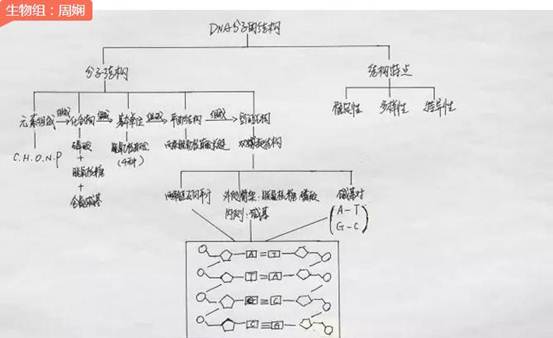 生物组：周娴
DNA分子的结构
分子结构 结构特点
元素组成 组成 化合物 组成 基本单位 组成 平面结构 组成 空间结构 稳定性 多样性 特异性
C.H.O.N.P 磷酸 脱氧核苷酸 双螺旋结构
+ (4种)
脱氧核糖
+
含氮碱基
外侧骨架：脱氧核糖 磷酸 碱基对
内侧：碱基 A-T
G-C
A T
T A
G C